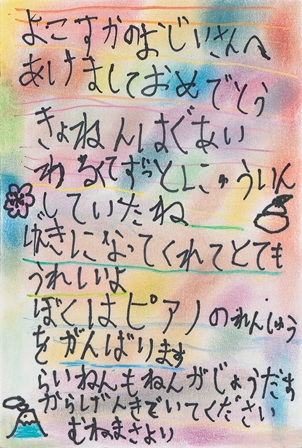 よこすかのおじいさんへ
あけましておめでとう
きょねんはぐあい
わるくてずっとにゅういん
していたね
げんきになってくれてとても
うれしいよ
ぼくはピアノのれんしゅう
をがんばります
らいねんもねんがじょうだす
からげんきでいてください
むねまさより